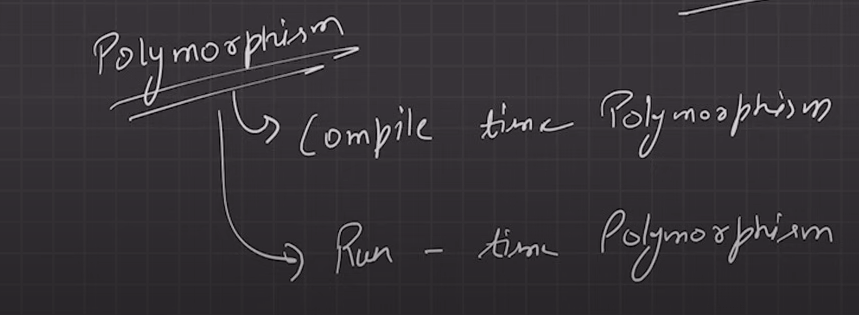 Polymorphism
Compile time Polymorphism
Run - time Polymorphism